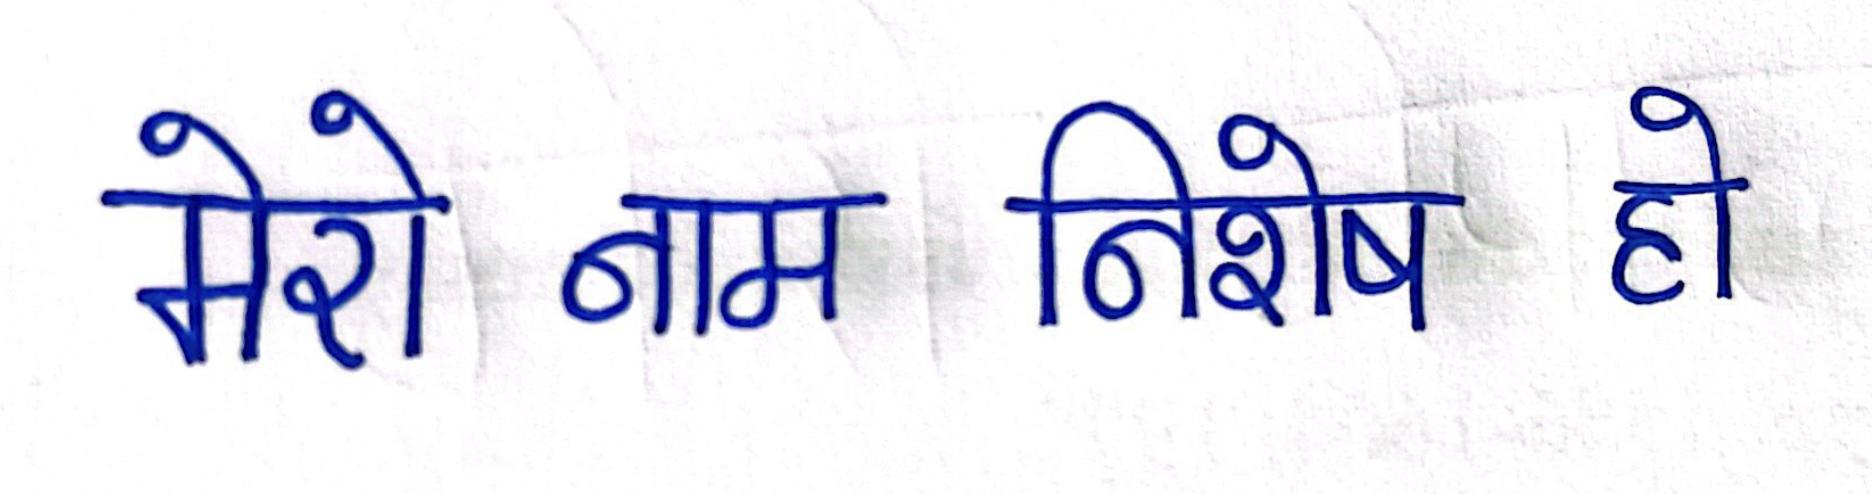 मेरो नाम निशेष हो